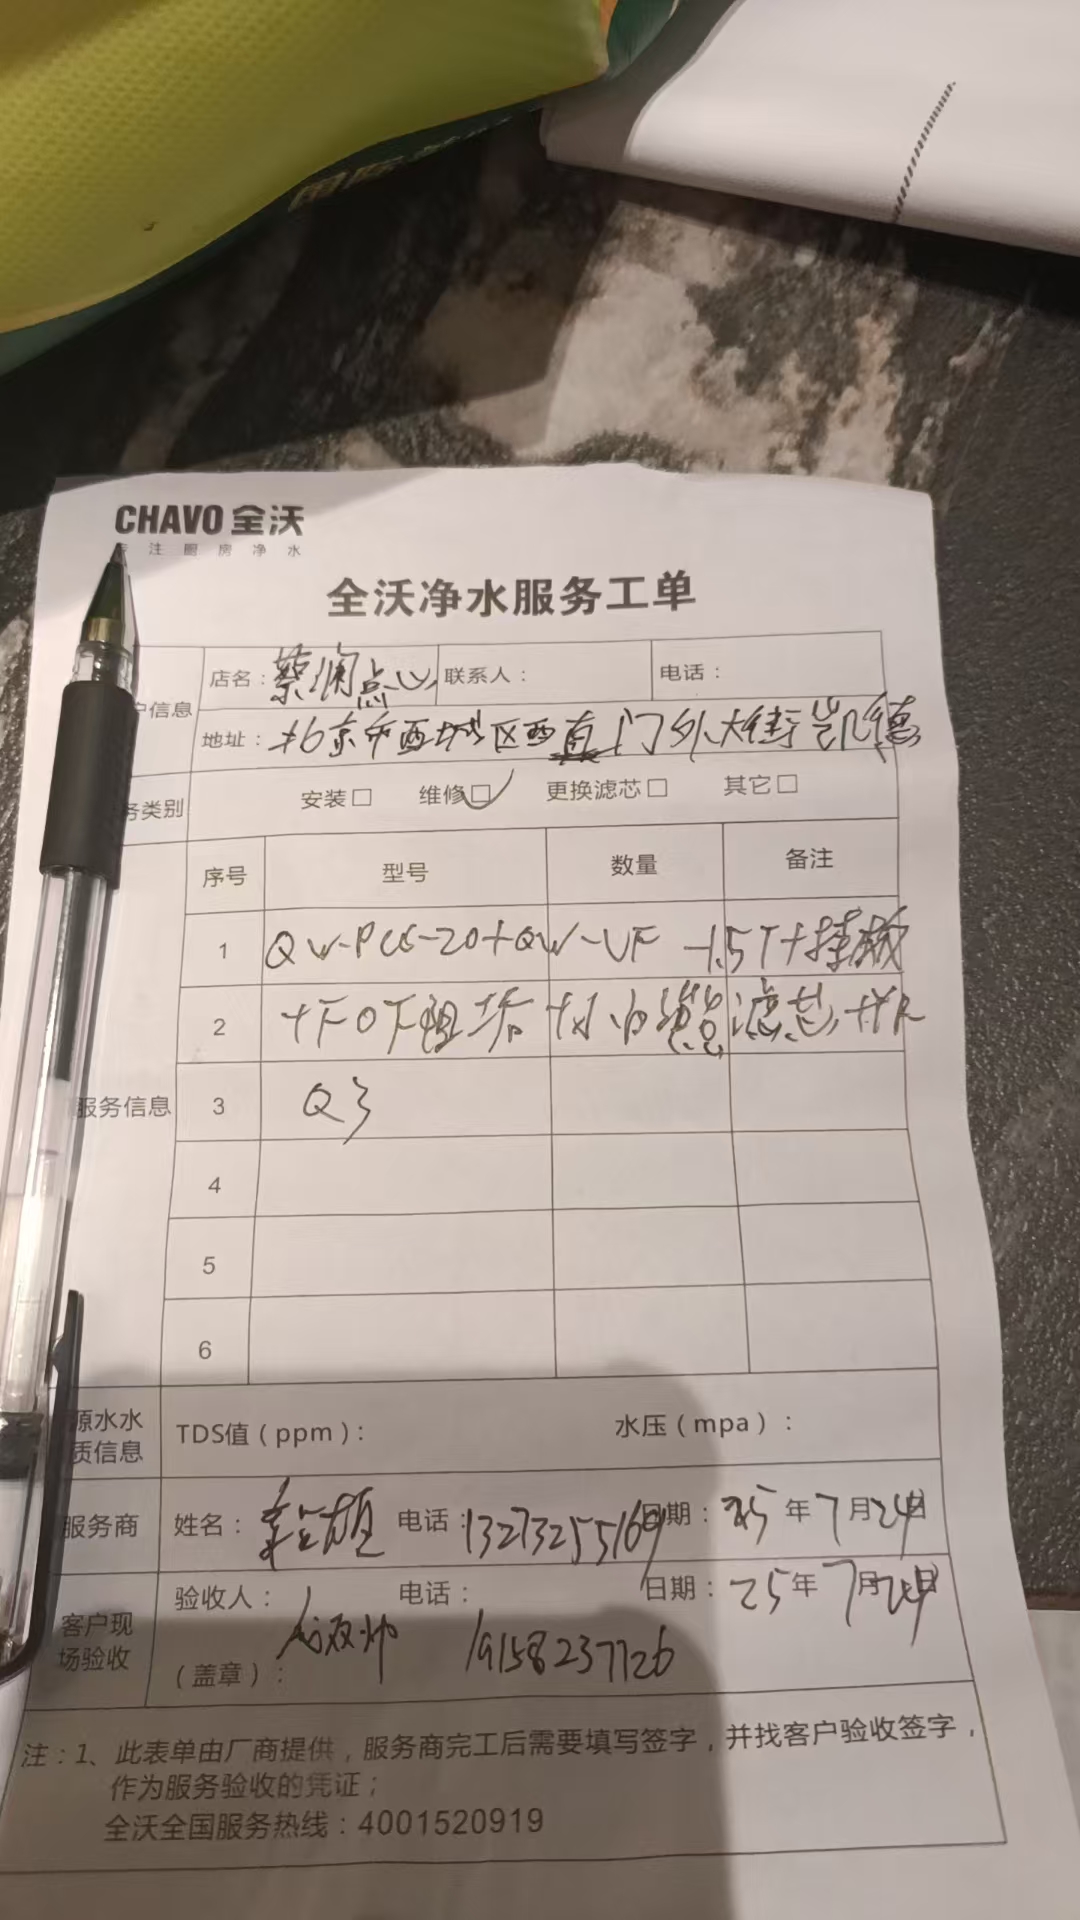 CHAVO 全沃
专注厨房净水
全沃净水服务工单
户信息 店名：蔡澜点心 联系人： 电话：
地址：北京市西城区西直门外大街凯德
务类别 安装□ 维修□ 更换滤芯□ 其它□
服务信息 序号 型号 数量 备注
1 QW-PC6-20+QW-UF -1.5T+
2 滤芯
3 Q3
4
5
6
源水水质信息 TDS值（ppm）： 水压（mpa）：
服务商 姓名： 电话：13273255169 日期：25年7月24日
客户现场验收 验收人： 电话：19158237726 日期：25年7月24日
（盖章）：
注：1、此表单由厂商提供，服务商完工后需要填写签字，并找客户验收签字，
作为服务验收的凭证；
全沃全国服务热线：4001520919